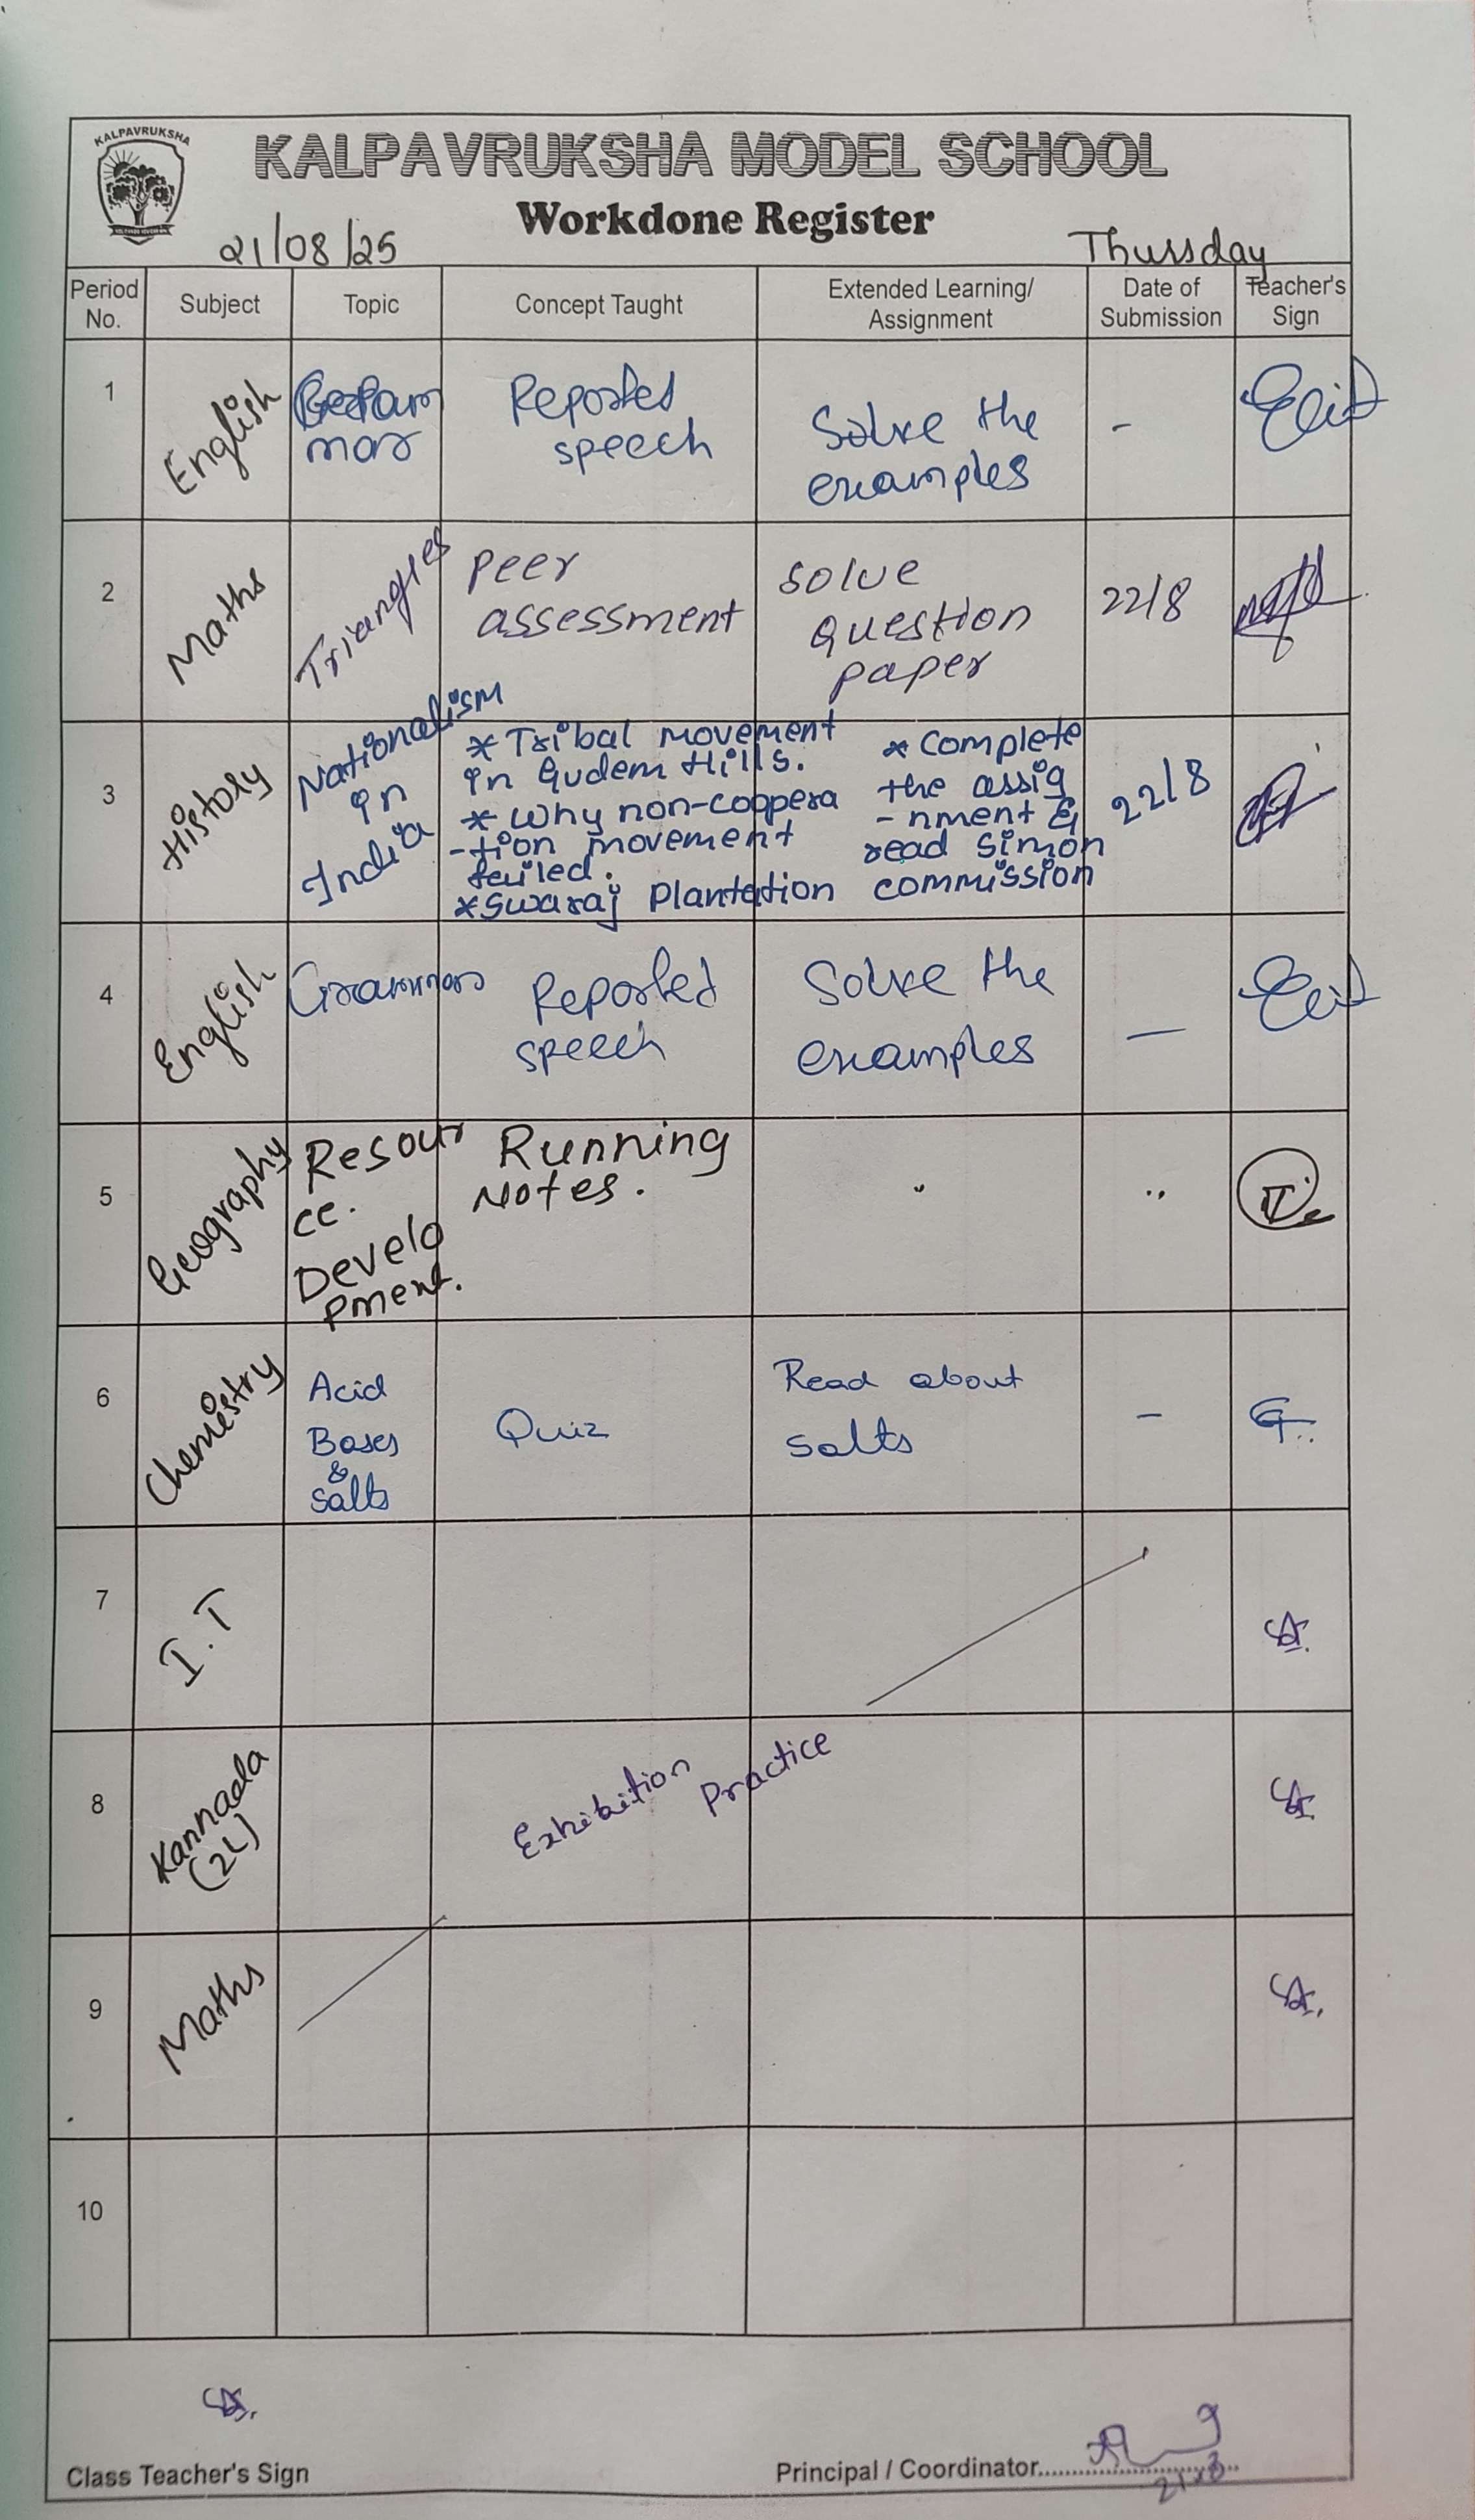 KALPAVRUKSHA
KALPAVRUKSHA MODEL SCHOOL
Workdone Register
21/08/25
Thursday
Period No.
Subject
Topic
Concept Taught
Extended Learning/
Assignment
Date of
Submission
Teacher's
Sign
1
English
mar
Reported
speech
Solve the
examples
-
2
Maths
Triangles
Peer
assessment
solve
question
paper
22/8
3
History
Nationalism
in
India
* Tribal movement
in Gudem Hills.
* Why non-coopera
-tion movement
failed.
* Swaraj Plantation
* Complete
the assig
-nment &
read Simon
commission
22/8
4
English
Grammar
Reported
speech
Solve the
examples
—
5
Geography
Resour
ce.
Develo
pment.
Running
Notes.
6
Chemistry
Acid
Bases
&
Salts
Quiz
Read about
salts
-
7
I.T
8
Kannada
(2L)
Exhibition Practice
9
Maths
10
Class Teacher's Sign
Principal / Coordinator
21.8